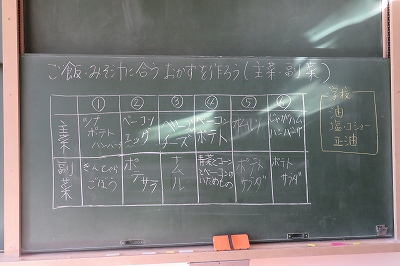 ご飯・みそ汁に合うおかずを作ろう(主菜・副菜)
① ② ③ ④ ⑤ ⑥
主菜
ツナ
ポテト
ハンバーグ
ベーコン
エッグ
チーズ
ベーコン
ポテト
じゃがハム
ハンバーグ
副菜
きんぴら
ごぼう
ポテ
サラ
ナムル
青菜とコーン
とベーコンの
いためもの
ポテト
サラダ
ポテト
サラダ
学校
油
塩・コショー
正油